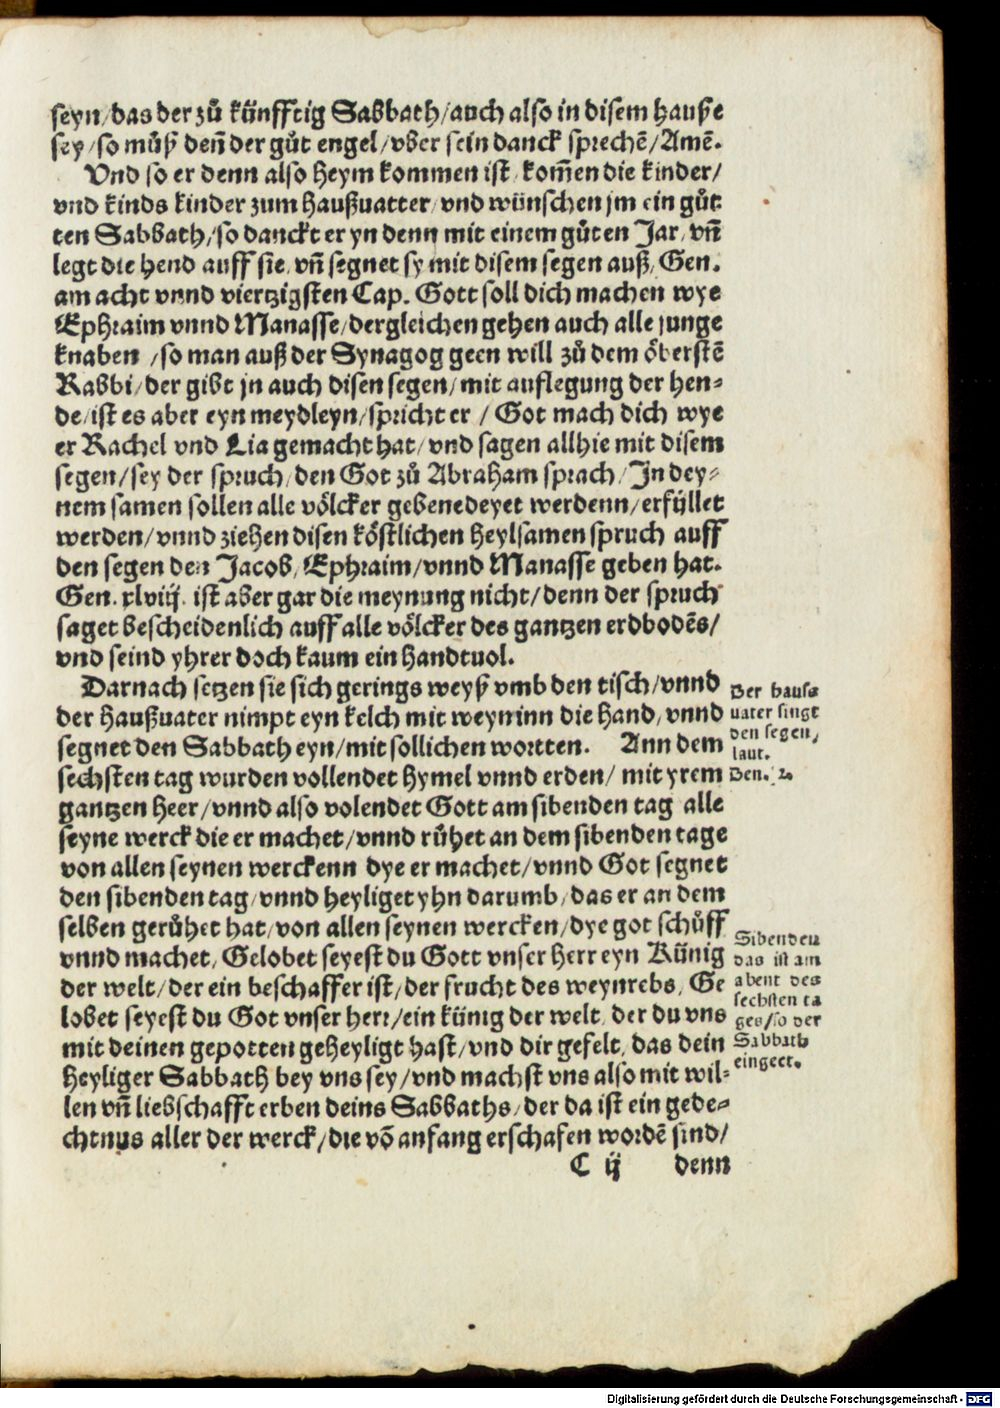 seyn/das der zů künfftig Sabbath/auch also in disem hauße
sey/so můß deñ der gůt engel/vber sein danck sprechē/Amē.
Vnd so er denn also heym kommen ist/kom̄en die kinder/
vnd kinds kinder zum haußuatter/vnd wünschen jm ein gůt
ten Sabbath/so danckt er yn denn mit einem gůten Jar/vñ
legt die hend auff sie/vñ segnet sy mit disem segen auß/Gen.
am acht vnnd viertzigsten Cap. Gott soll dich machen wye
Ephraim vnnd Manasse/dergleichen gehen auch alle junge
knaben /so man auß der Synagog geen will zů dem öberstē
Rabbi/der gibt jn auch disen segen/mit auflegung der hen⸗
de/ist es aber eyn meydleyn/spricht er / Got mach dich wye
er Rachel vnd Lia gemacht hat/vnd sagen allhie mit disem
segen/sey der spruch/den Got zů Abraham sprach/In dey⸗
nem samen sollen alle völcker gebenedeyet werdenn/erfyllet
werden/vnnd ziehen disen köstlichen heylsamen spruch auff
den segen den Jacob/Ephraim/vnnd Manasse geben hat.
Gen. xlviij. ist aber gar die meynung nicht/denn der spruch
saget bescheidenlich auff alle völcker des gantzen erdbodēs/
vnd seind yhrer doch kaum ein handtuol.
Darnach setzen sie sich gerings weyß vmb den tisch/vnnd
der haußuater nimpt eyn kelch mit weyn inn die hand/vnnd
segnet den Sabbath eyn/mit sollichen wortten. Ann dem
sechsten tag wurden vollendet hymel vnnd erden/ mit yrem
gantzen heer/vnnd also volendet Gott am sibenden tag alle
seyne werck die er machet/vnnd růhet an dem sibenden tage
von allen seynen werckenn dye er machet/vnnd Got segnet
den sibenden tag/vnnd heyliget yhn darumb/das er an dem
selben gerůhet hat/von allen seynen wercken/dye got schůff
vnnd machet/Gelobet seyest du Gott vnser herr eyn Künig
der welt/der ein beschaffer ist/der frucht des weynrebs/Ge
lobet seyest du Got vnser herr/ein künig der welt/der du vns
mit deinen gepotten geheyligt hast/vnd dir gefelt/das dein
heyliger Sabbath bey vns sey/vnd machst vns also mit wil⸗
len vñ liebschafft erben deins Sabbaths/der da ist ein gede⸗
chtnus aller der werck/die vō anfang erschafen wordē sind/
C ij denn
Der hauß
uater singt
den segen/
laut.
Gen. 2.
Sibenden
das ist am
abent des
sechsten ta
ges/so der
Sabbath
eingeet.
Digitalisierung gefördert durch die Deutsche Forschungsgemeinschaft - DFG